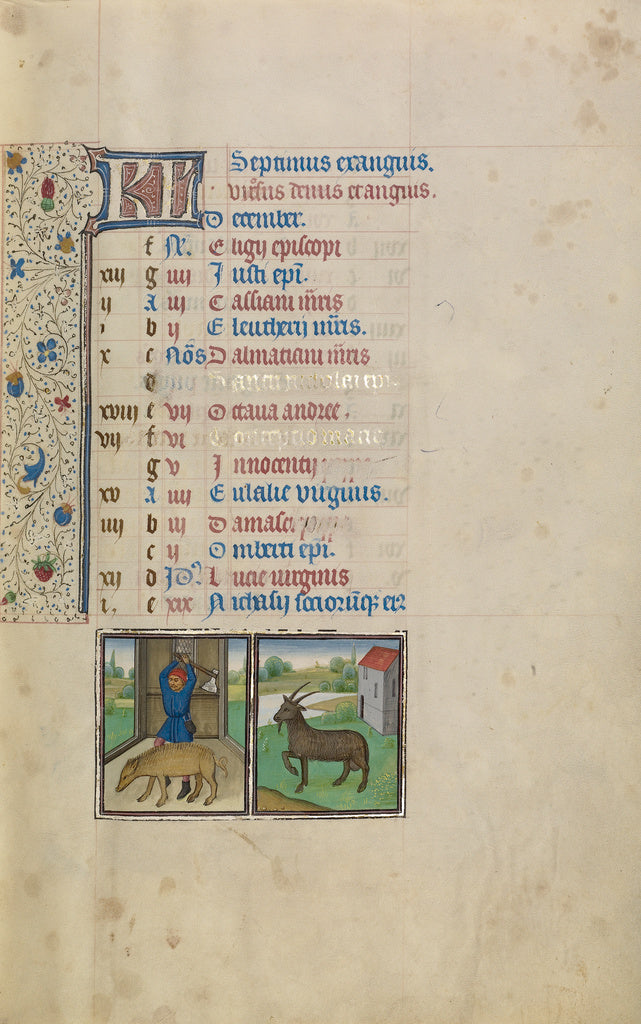 KL Septimus exanguis.
virosus denus et anguis.
December.
f N. Eligij episcopi
xiii g iiii Iusti epi.
ii A iii Cassiani mris
i b ii Eleutherij mris.
x c Nos Dalmaciani mris
d Sancti nicholai epi.
xviii e vii Octava andree.
vii f vi Conceptio marie
g v Innocentij
xv A iiii Eulalie virginis.
iiii b iii Damasci
c ii Omberti epi.
xii d Id9 Lucie virginis
i. e xix Nichasij sociorumq3 eius